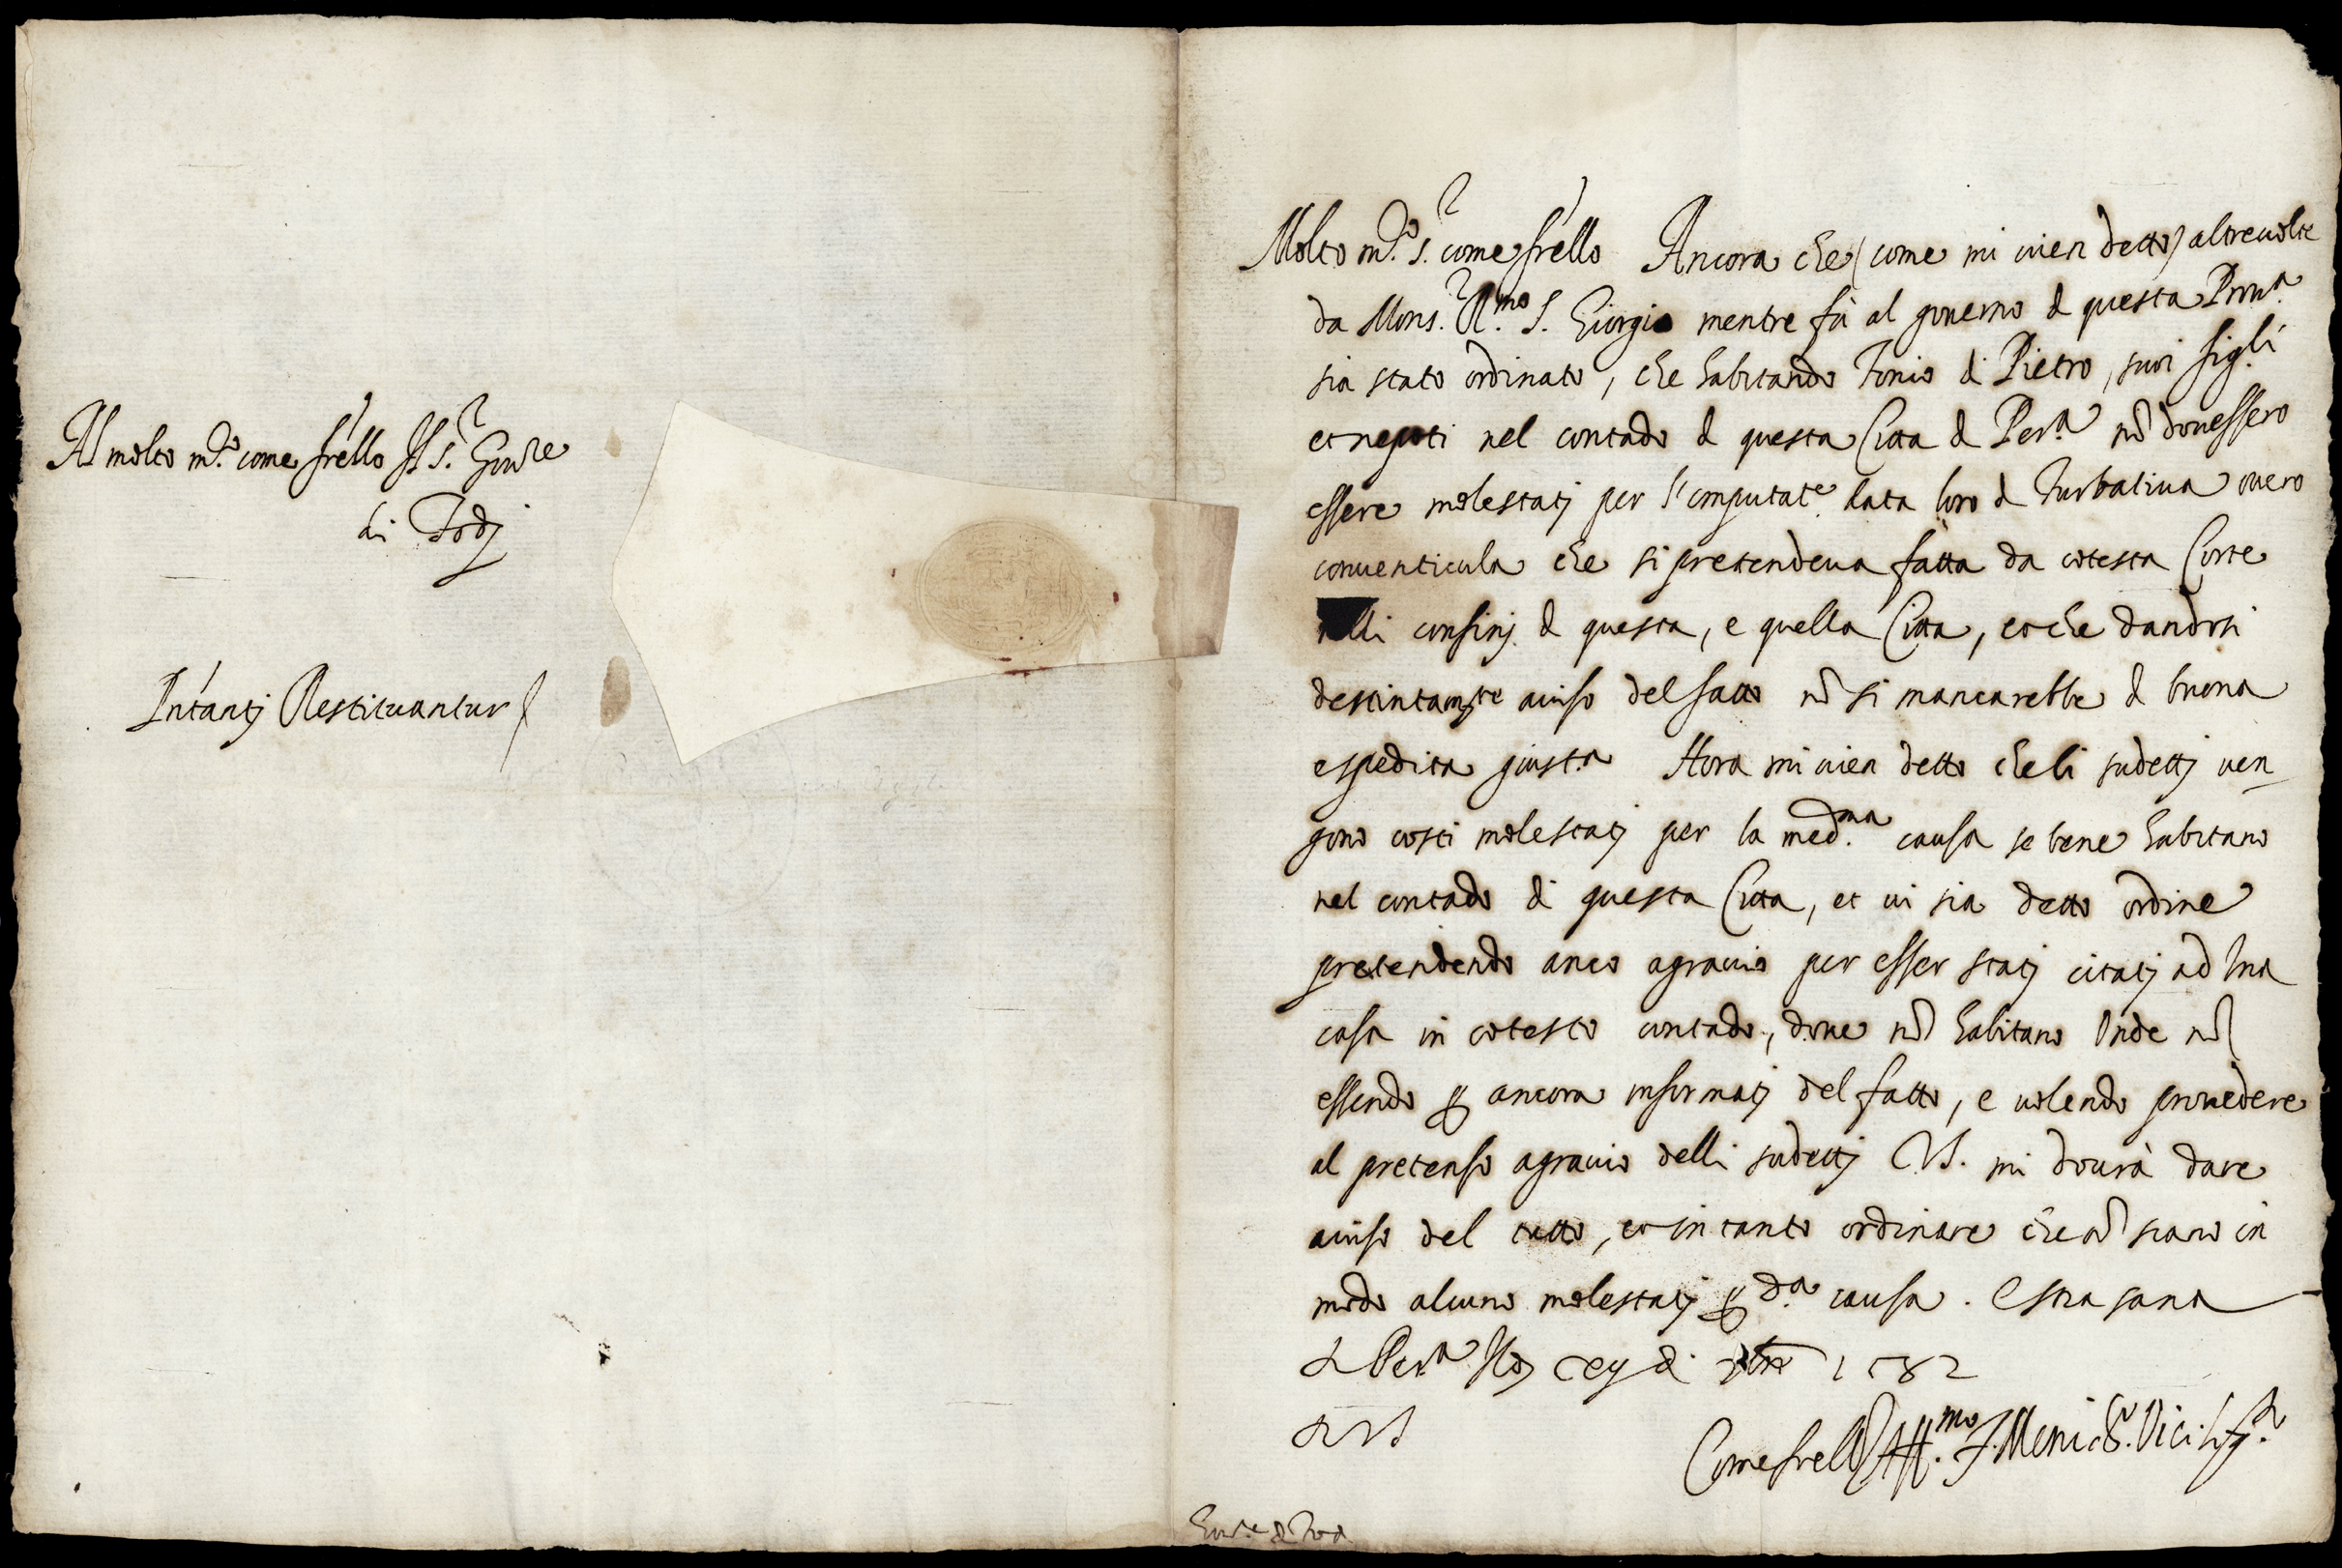 Al molto m.co come fr'ello Il S.r Gov.re
di Todj
Intantj Restituantur
Molto m.co S.r come fr'ello Ancora che (come mi vien detto) altrevolte
da Mons.r R.mo S. Giorgio mentre fù al governo d questa Prov.a
sia stato ordinato, che habitando Tonio di Pietro, suoi figli
et nepoti nel contado d questa Citta d Per.a nõ dovessero
essere molestatj per l'imputat.e data loro d Turbativa overo
conventicula che si pretendeva fatta da cotesta Corte
nelli confinj d questa, e quella Citta, et che dandosi
destintam.te aviso del fatto nõ si mancarebbe d buona
espedita giust.a Hora mi vien detto che li sudettj ven
gono costi molestatj per la med.ma causa se bene habitano
nel contado di questa Citta, et vi sia detto ordine
pretendendo anco agravio per esser statj citatj ad una
casa in cotesto contado, dove nõ habitano Onde nõ
essendo p ancora informatj del fatto, e volendo provedere
al pretenso agravio delli sudettj V.S. mi dovrà dare
aviso del tutto, et in tanto ordinare che nõ siano in
modo alcuno molestatj p d.a causa. E stia sana
d Per.a li di 1582
d V S
Come fr'ello Aff.mo Vicileg.to
Gov.re d Todi